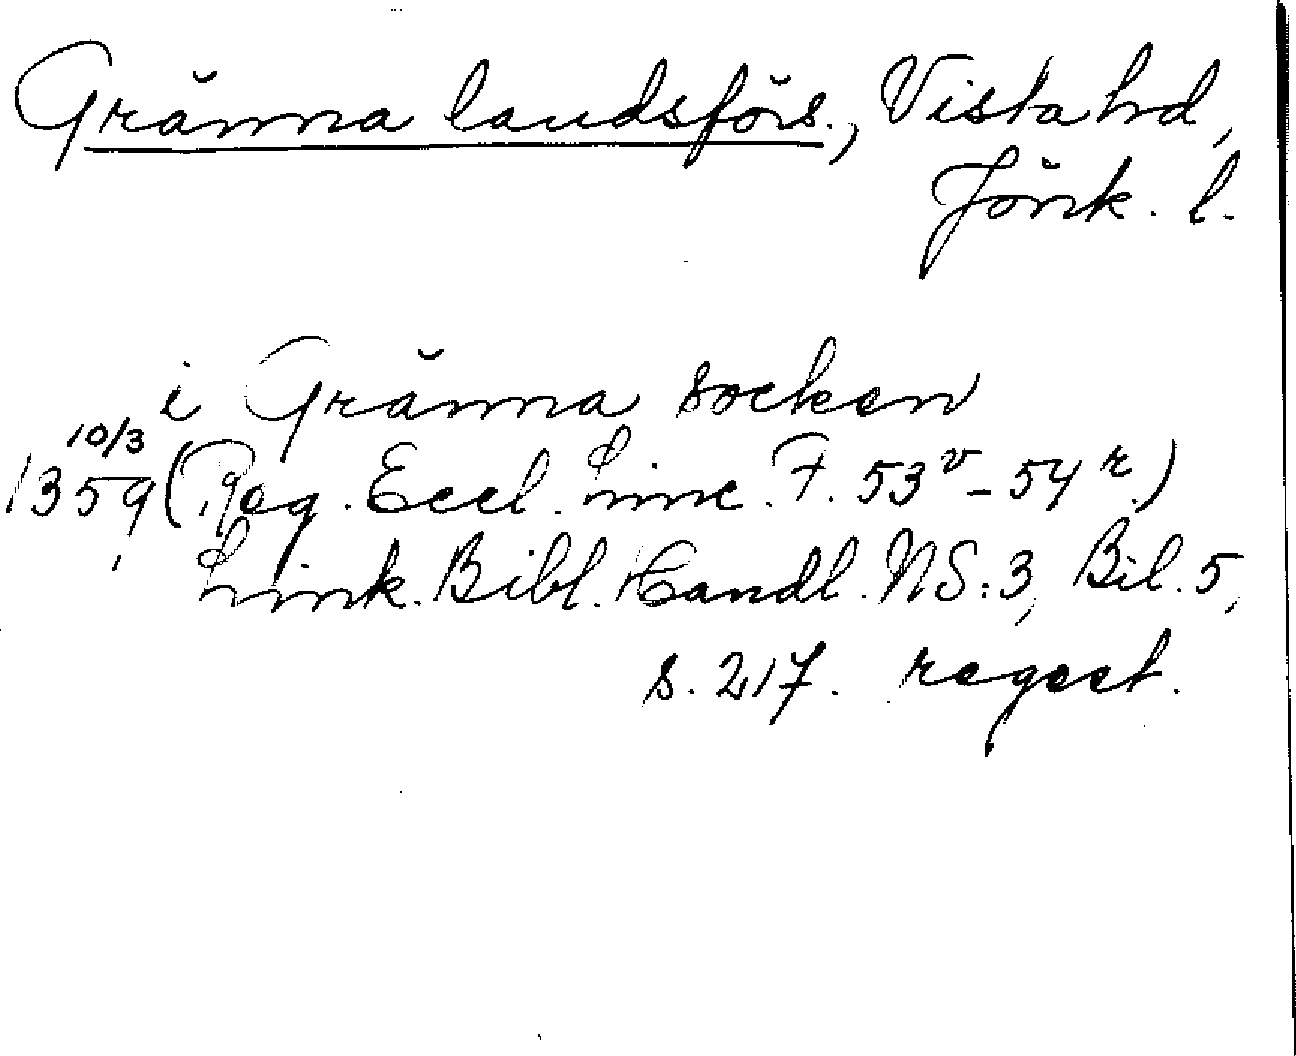 Gränna landsförs., Vista hd,
Jönk. l.
i Gränna socken
10/3
1359 (Reg. Eccl. Linc. F. 53v - 54r)
Link. Bibl. Handl. NS:3, Bil. 5,
s. 217. regest.